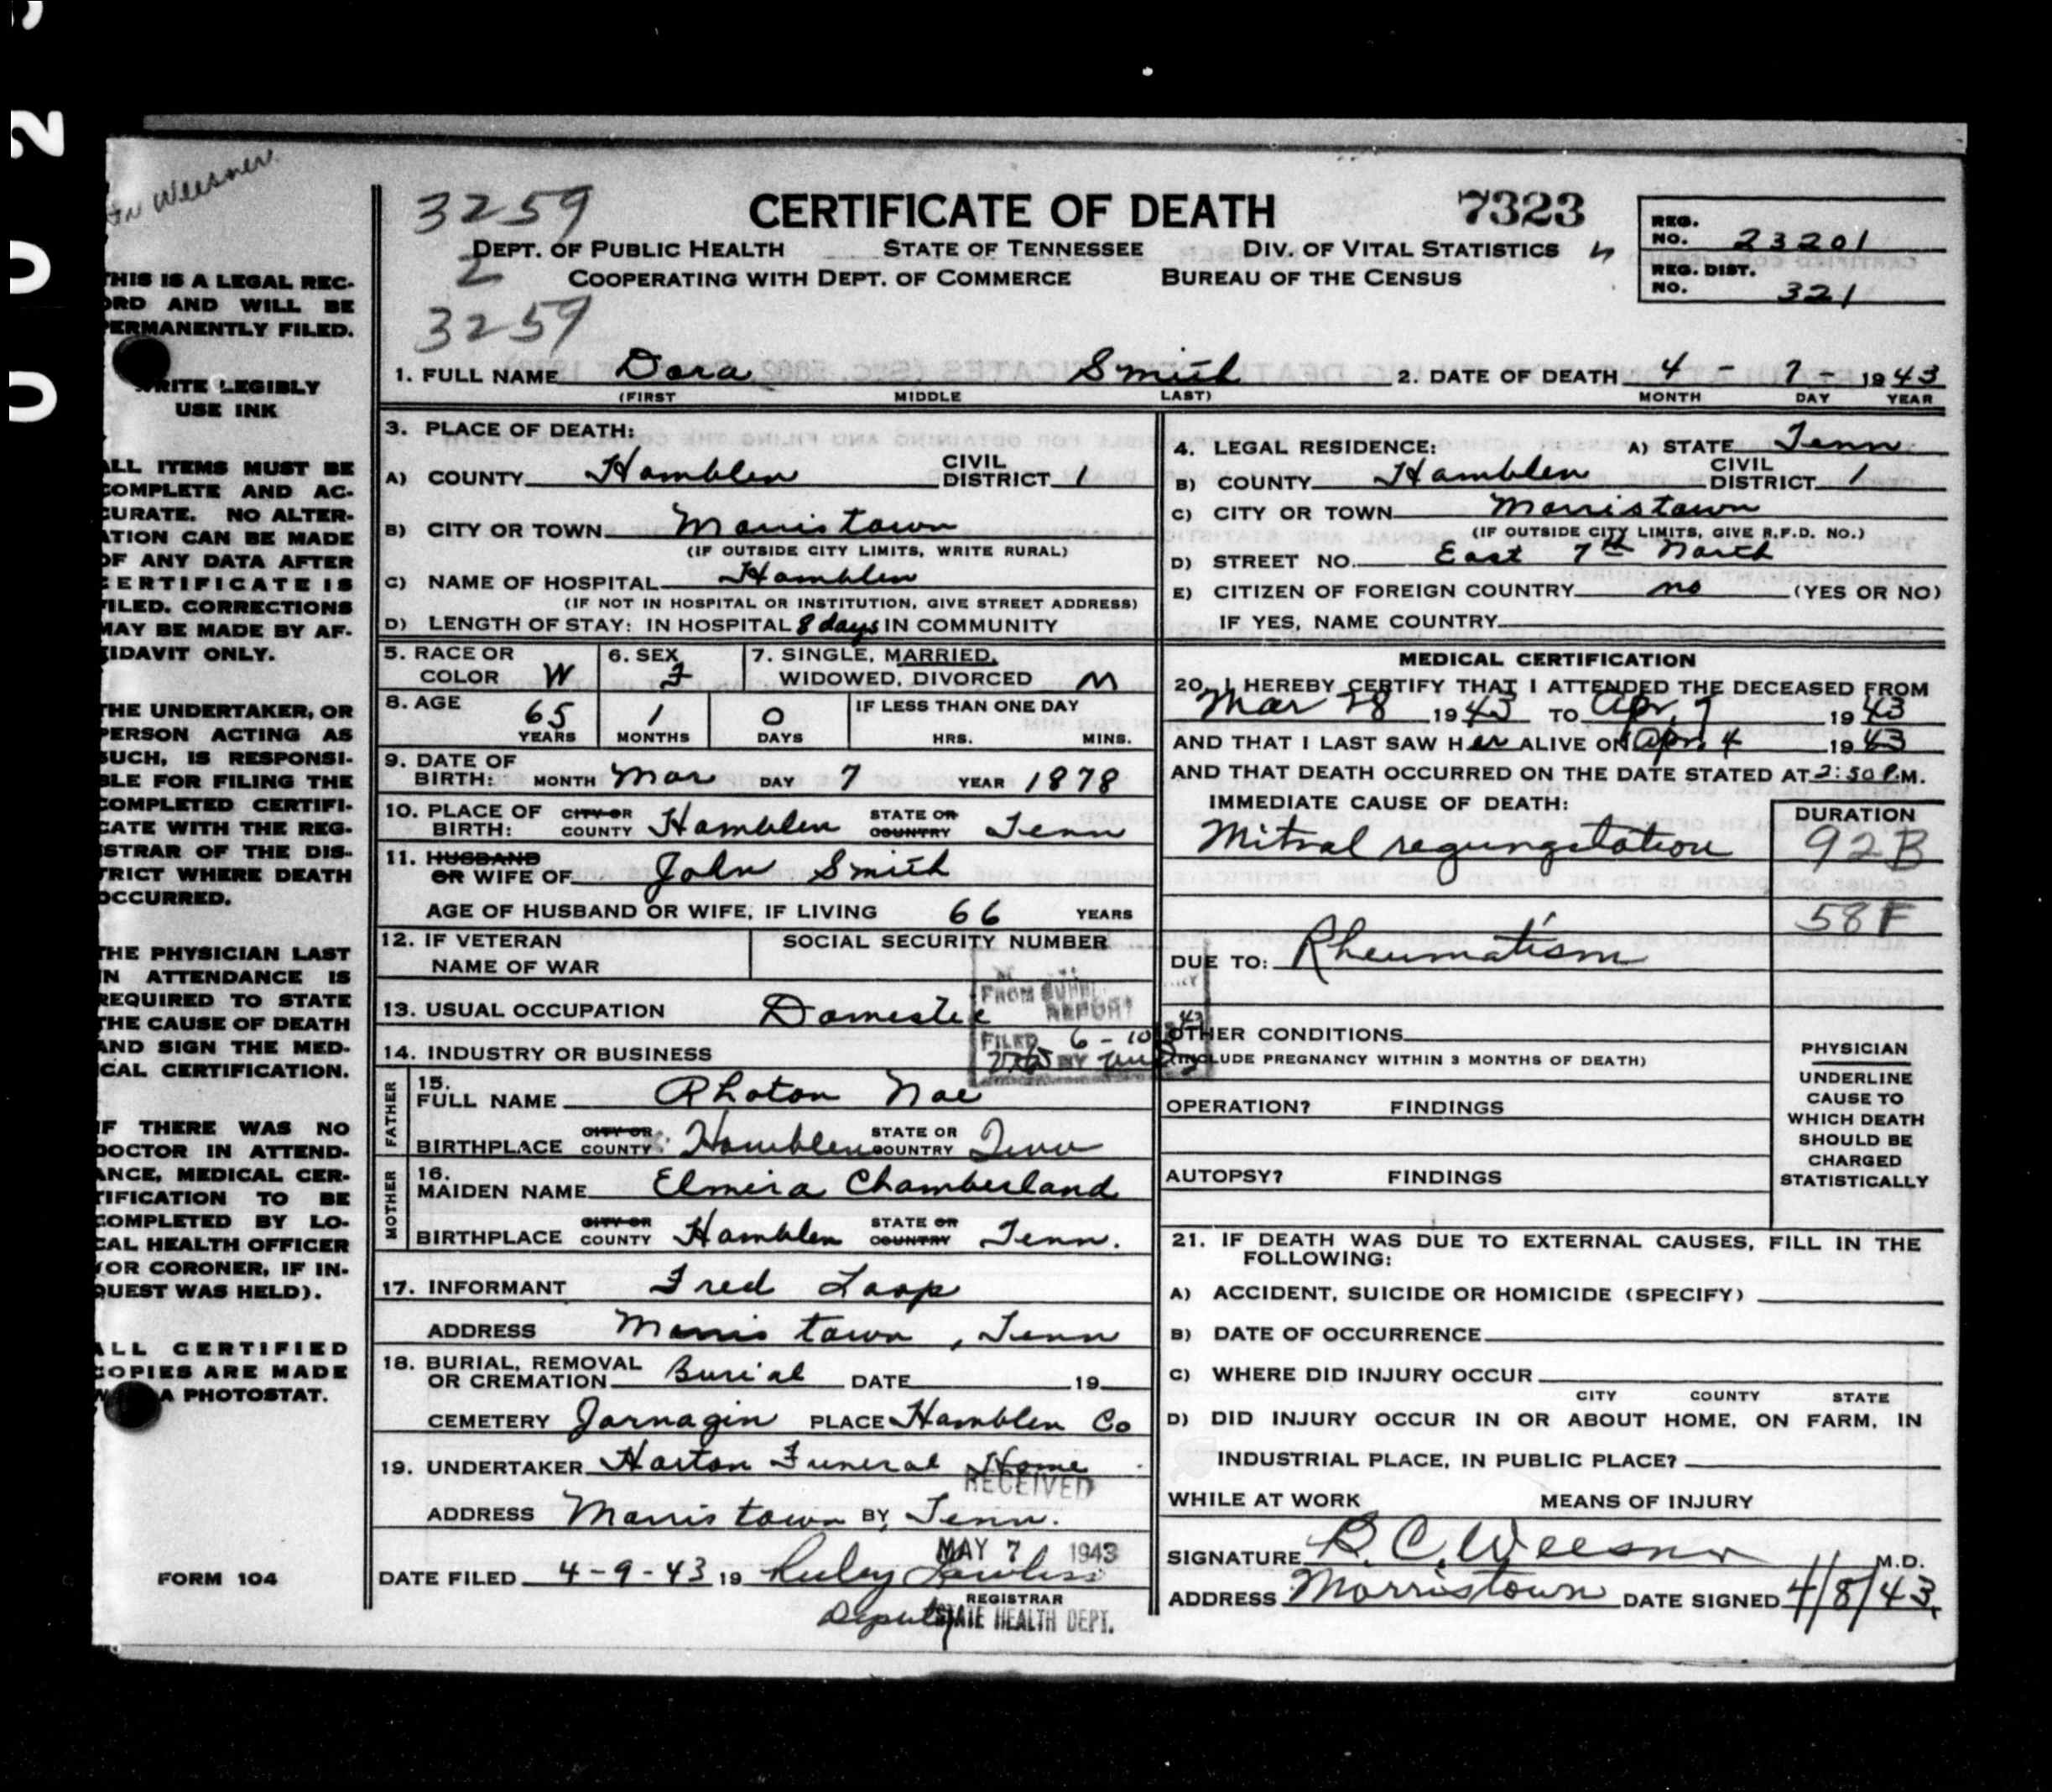 Weesner
THIS IS A LEGAL REC-
ORD AND WILL BE
PERMANENTLY FILED.
WRITE LEGIBLY
USE INK
ALL ITEMS MUST BE
COMPLETE AND AC-
CURATE. NO ALTER-
ATION CAN BE MADE
OF ANY DATA AFTER
CERTIFICATE IS
FILED. CORRECTIONS
MAY BE MADE BY AF-
FIDAVIT ONLY.
THE UNDERTAKER, OR
PERSON ACTING AS
SUCH, IS RESPONSI-
BLE FOR FILING THE
COMPLETED CERTIFI-
CATE WITH THE REG-
ISTRAR OF THE DIS-
TRICT WHERE DEATH
OCCURRED.
THE PHYSICIAN LAST
IN ATTENDANCE IS
REQUIRED TO STATE
THE CAUSE OF DEATH
AND SIGN THE MED-
ICAL CERTIFICATION.
IF THERE WAS NO
DOCTOR IN ATTEND-
ANCE, MEDICAL CER-
TIFICATION TO BE
COMPLETED BY LO-
CAL HEALTH OFFICER
(OR CORONER, IF IN-
QUEST WAS HELD).
ALL CERTIFIED
COPIES ARE MADE
A PHOTOSTAT.
FORM 104
3259 CERTIFICATE OF DEATH 7323
DEPT. OF PUBLIC HEALTH STATE OF TENNESSEE DIV. OF VITAL STATISTICS
2 COOPERATING WITH DEPT. OF COMMERCE BUREAU OF THE CENSUS
3259
REG. NO. 23201
REG. DIST. NO. 321
1. FULL NAME Dora Smith 2. DATE OF DEATH 4 - 7 - 1943
(FIRST MIDDLE LAST) MONTH DAY YEAR
3. PLACE OF DEATH:
A) COUNTY Hamblen CIVIL DISTRICT 1
B) CITY OR TOWN Morristown
(IF OUTSIDE CITY LIMITS, WRITE RURAL)
C) NAME OF HOSPITAL Hamblen
(IF NOT IN HOSPITAL OR INSTITUTION, GIVE STREET ADDRESS)
D) LENGTH OF STAY: IN HOSPITAL 8 days IN COMMUNITY
4. LEGAL RESIDENCE: A) STATE Tenn.
B) COUNTY Hamblen CIVIL DISTRICT 1
C) CITY OR TOWN Morristown
(IF OUTSIDE CITY LIMITS, GIVE R.F.D. NO.)
D) STREET NO. East 7th North
E) CITIZEN OF FOREIGN COUNTRY no (YES OR NO)
IF YES, NAME COUNTRY
5. RACE OR COLOR W 6. SEX F 7. SINGLE, MARRIED, WIDOWED, DIVORCED M
8. AGE 65 YEARS 1 MONTHS 0 DAYS IF LESS THAN ONE DAY HRS. MINS.
9. DATE OF BIRTH: MONTH Mar DAY 7 YEAR 1878
10. PLACE OF BIRTH: CITY OR COUNTY Hamblen STATE OR COUNTRY Tenn
11. HUSBAND OR WIFE OF John Smith
AGE OF HUSBAND OR WIFE, IF LIVING 66 YEARS
12. IF VETERAN NAME OF WAR SOCIAL SECURITY NUMBER
13. USUAL OCCUPATION Domestic
FROM REPORT
FILED 6 - 10 43
BY
14. INDUSTRY OR BUSINESS
FATHER
15. FULL NAME Rhoton Noe
BIRTHPLACE CITY OR COUNTY Hamblen STATE OR COUNTRY Tenn
MOTHER
16. MAIDEN NAME Elmira Chamberland
BIRTHPLACE CITY OR COUNTY Hamblen STATE OR COUNTRY Tenn.
17. INFORMANT Fred Loop
ADDRESS Morristown, Tenn
18. BURIAL, REMOVAL OR CREMATION Burial DATE 19
CEMETERY Jarnagin PLACE Hamblen Co
19. UNDERTAKER Horton Funeral Home
RECEIVED
ADDRESS Morristown BY, Tenn.
MAY 7 1943
DATE FILED 4-9-43 19 Ruley Lawless
REGISTRAR
Deputy STATE HEALTH DEPT.
MEDICAL CERTIFICATION
20. I HEREBY CERTIFY THAT I ATTENDED THE DECEASED FROM
Mar 28 1943 TO Apr. 7 1943
AND THAT I LAST SAW HER ALIVE ON Apr. 4 1943
AND THAT DEATH OCCURRED ON THE DATE STATED AT 2:50 P.M.
IMMEDIATE CAUSE OF DEATH: DURATION
Mitral regurgitation 92B
58F
DUE TO: Rheumatism
OTHER CONDITIONS
(INCLUDE PREGNANCY WITHIN 3 MONTHS OF DEATH)
OPERATION? FINDINGS
AUTOPSY? FINDINGS
PHYSICIAN
UNDERLINE
CAUSE TO
WHICH DEATH
SHOULD BE
CHARGED
STATISTICALLY
21. IF DEATH WAS DUE TO EXTERNAL CAUSES, FILL IN THE
FOLLOWING:
A) ACCIDENT, SUICIDE OR HOMICIDE (SPECIFY)
B) DATE OF OCCURRENCE
C) WHERE DID INJURY OCCUR
CITY COUNTY STATE
D) DID INJURY OCCUR IN OR ABOUT HOME, ON FARM, IN
INDUSTRIAL PLACE, IN PUBLIC PLACE?
WHILE AT WORK MEANS OF INJURY
SIGNATURE B. C. Weesner M.D.
ADDRESS Morristown DATE SIGNED 4/8/43